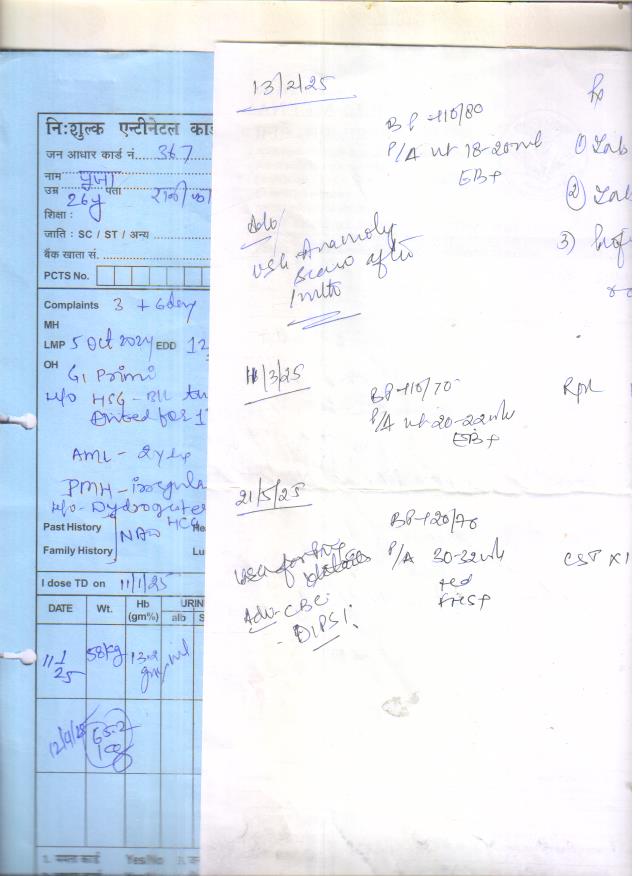 निःशुल्क एन्टीनेटल का
जन आधार कार्ड नं. 367
नाम पूजा
उम्र 26y पता
शिक्षा :
जाति : SC / ST / अन्य
बैंक खाता सं.
PCTS No.
Complaints 3 + 6 day
MH
LMP 5 Oct 2024 EDD 12
OH
G1 Primi
H/o HSG - B/L
for 1
AML - 2y
PMH - irregula
H/o - Hydro
HCG
Past History NAD
Family History Lu
I dose TD on 11/1/25
DATE Wt. Hb (gm%) URIN
alb S
11/1/25 58kg 13.2 gm nil
12/4/25 65.2 kg
1. ममता कार्ड Yes/No
13/2/25
BP - 110/80
P/A ut 18-20 wk
EB+
Adv
USG Anamoly
Scan after
1 mth
Rx
1) Tab
2) Tab
3) Prof
11/3/25
BP - 110/70
P/A ut 20-22 wk
EB+
Rpt
21/5/25
BP - 120/70
P/A 30-32 wk
USG for
CST X 1
Adv - CBC
- DIPSI